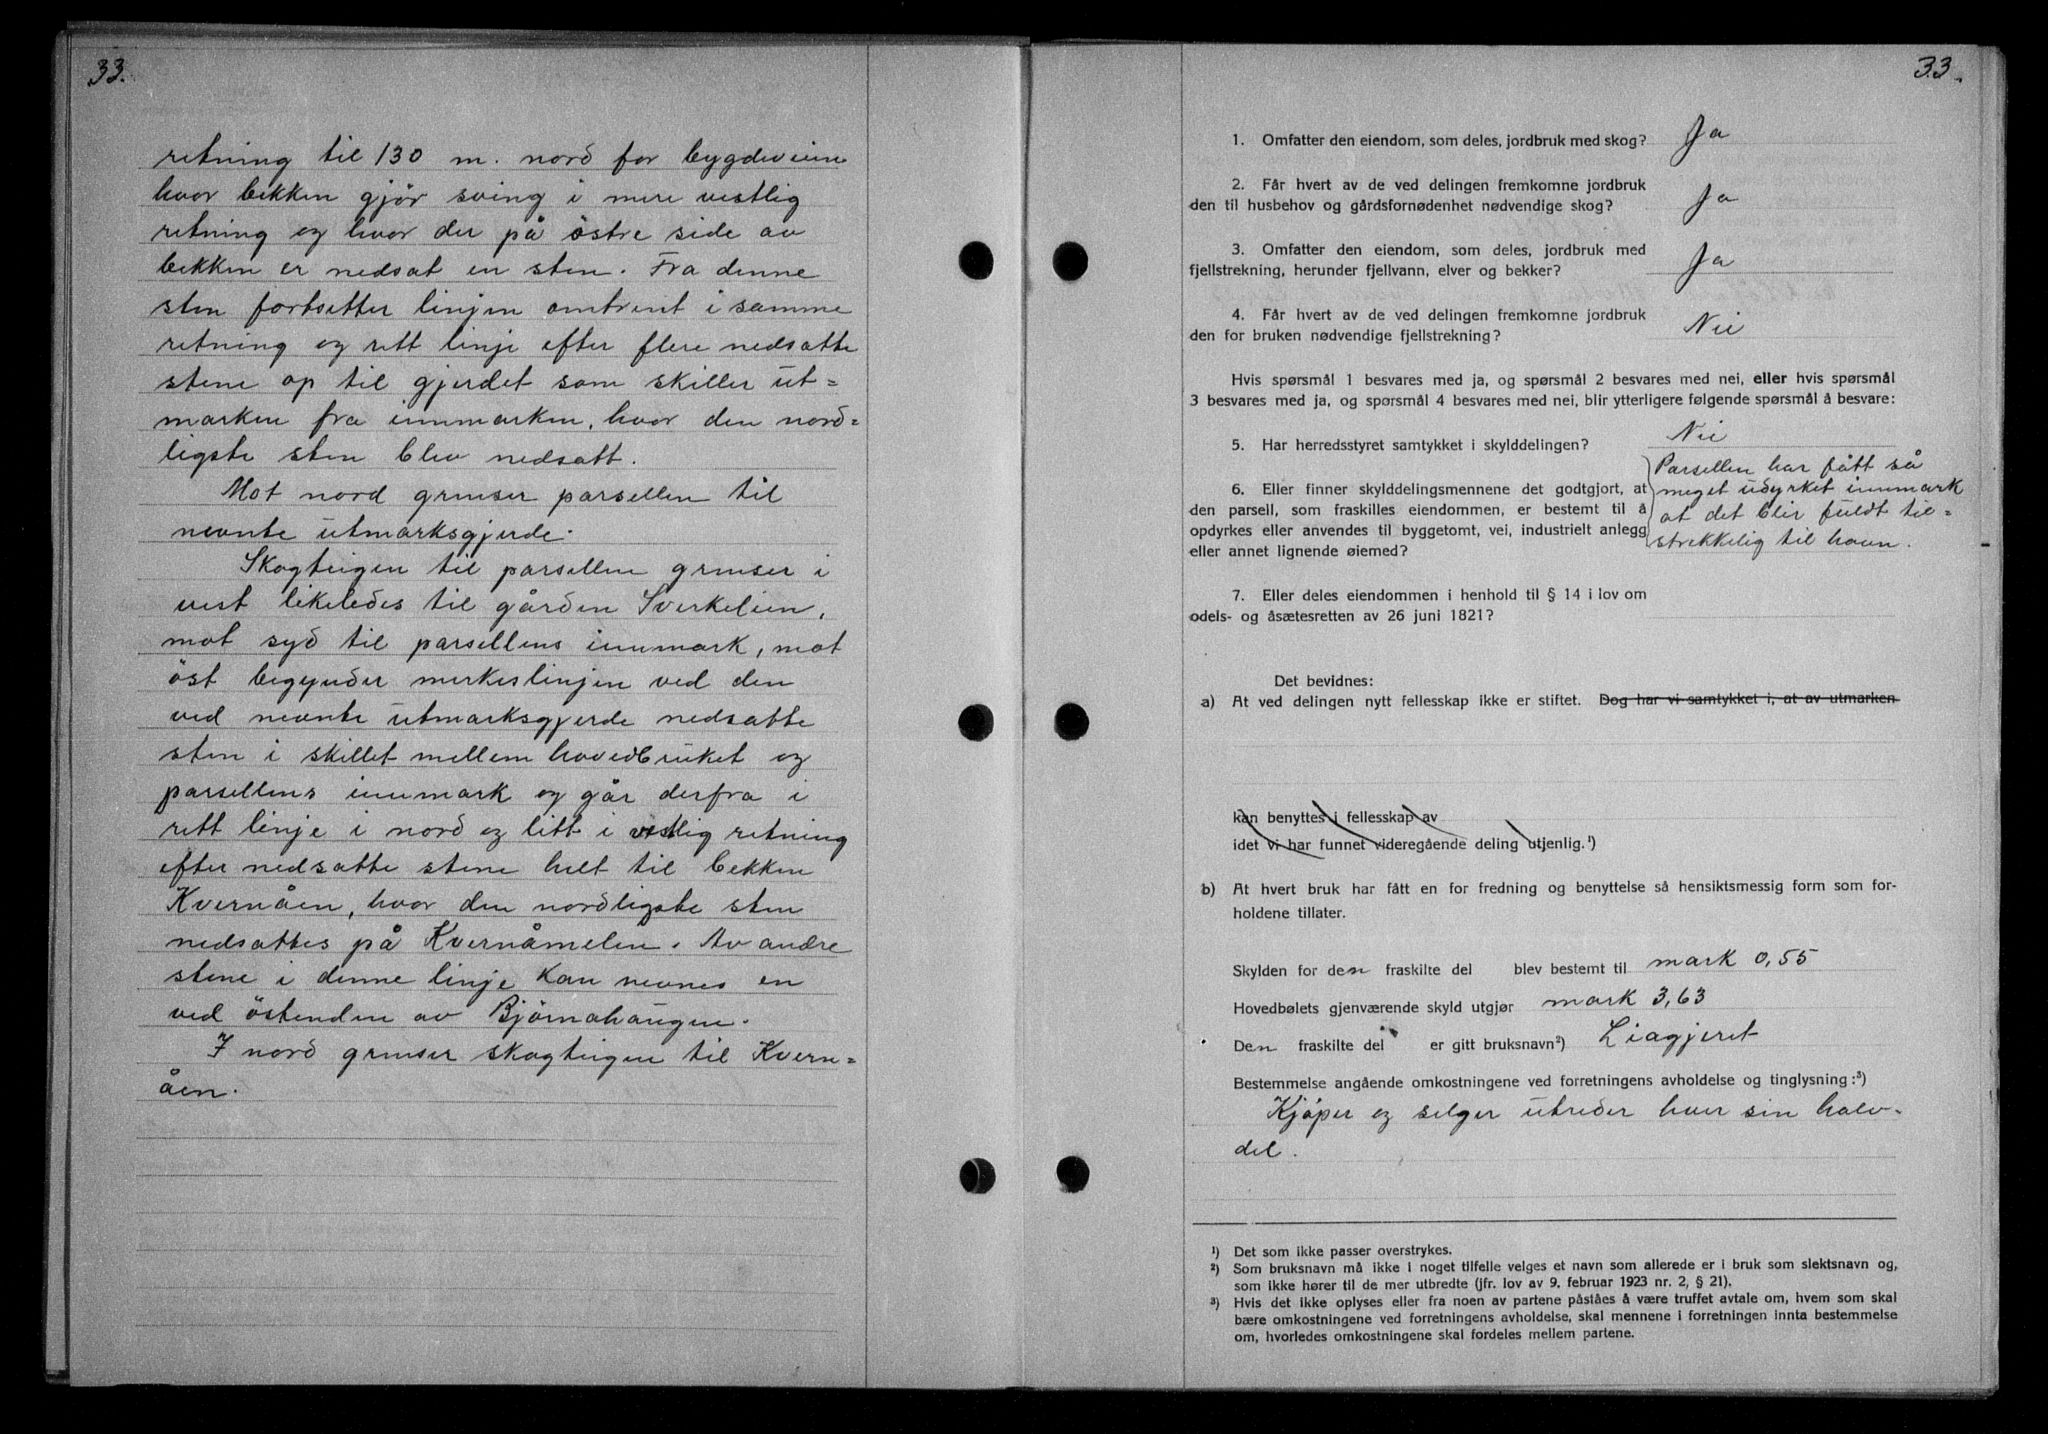 33.
retning til 130 m. nord for bygdeveien
hvor bekken gjør sving i mere vestlig
retning og hvor der på östre side av
bekken er nedsat en sten. Fra denne
sten fortsetter linjen omtrent i samme
retning og rett linje efter flere nedsatte
stene op til gjerdet som skiller ut=
marken fra innmarken, hvor den nord=
ligste sten blev nedsatt.
Mot nord grenser parsellen til
nevnte utmarksgjerde.
Skogteigen til parsellen grenser i
vest likeledes til gården Sverkelien,
mot syd til parsellens innmark, mot
öst begynder merkeslinjen ved den
ved nevnte utmarksgjerde nedsatte
sten i skillet mellem hovedbruket og
parsellens innmark og går derfra i
rett linje i nord og litt i vestlig retning
efter nedsatte stene helt til bekken
Kvernåen, hvor den nordligste sten
nedsattes på Kvernåmelen. Av andre
stene i denne linje kan nevnes en
ved östenden av Björnahaugen.
I nord grenser skogteigen til Kvern=
åen.
33.
1. Omfatter den eiendom, som deles, jordbruk med skog? Ja
2. Får hvert av de ved delingen fremkomne jordbruk
den til husbehov og gårdsfornødenhet nødvendige skog? Ja
3. Omfatter den eiendom, som deles, jordbruk med
fjellstrekning, herunder fjellvann, elver og bekker? Ja
4. Får hvert av de ved delingen fremkomne jordbruk
den for bruken nødvendige fjellstrekning? Nei
Hvis spørsmål 1 besvares med ja, og spørsmål 2 besvares med nei, eller hvis spørsmål
3 besvares med ja, og spørsmål 4 besvares med nei, blir ytterligere følgende spørsmål å besvare:
5. Har herredsstyret samtykket i skylddelingen? Nei
6. Eller finner skylddelingsmennene det godtgjort, at
den parsell, som fraskilles eiendommen, er bestemt til å
opdyrkes eller anvendes til byggetomt, vei, industrielt anlegg
eller annet lignende øiemed?
Parsellen har fått så
meget udyrket innmark
at det blir fuldt til=
strekkelig til havn.
7. Eller deles eiendommen i henhold til § 14 i lov om
odels- og åsætesretten av 26 juni 1821?
Det bevidnes:
a) At ved delingen nytt fellesskap ikke er stiftet. Dog har vi samtykket i, at av utmarken
kan benyttes i fellesskap av
idet vi har funnet videregående deling utjenlig.¹)
b) At hvert bruk har fått en for fredning og benyttelse så hensiktsmessig form som for-
holdene tillater.
Skylden for den fraskilte del blev bestemt til mark 0,55
Hovedbølets gjenværende skyld utgjør mark 3,63
Den fraskilte del er gitt bruksnavn²) Liagjeret
Bestemmelse angående omkostningene ved forretningens avholdelse og tinglysning:³)
Kjøper og selger utreder hver sin halv-
del.
¹) Det som ikke passer overstrykes.
²) Som bruksnavn må ikke i noget tilfelle velges et navn som allerede er i bruk som slektsnavn og,
som ikke hører til de mer utbredte (jfr. lov av 9. februar 1923 nr. 2, § 21).
³) Hvis det ikke oplyses eller fra noen av partene påståes å være truffet avtale om, hvem som skal
bære omkostningene ved forretningens avholdelse, skal mennene i forretningen innta bestemmelse
om, hvorledes omkostningene skal fordeles mellem partene.